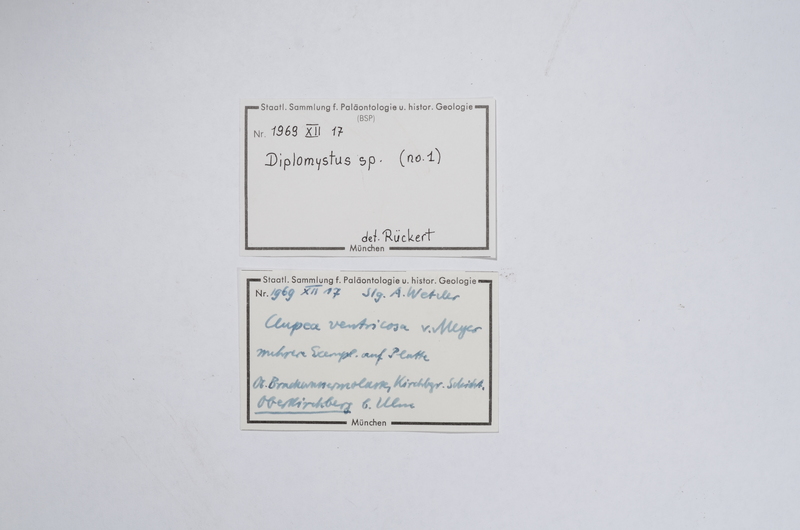 Staatl. Sammlung f. Paläontologie u. histor. Geologie
(BSP)
Nr. 1969 XII 17
Diplomystus sp. (no. 1)
det. Rückert
München
Staatl. Sammlung f. Paläontologie u. histor. Geologie
Nr. 1969 XII 17 Slg. A. Wetzler
Clupea ventricosa v. Meyer
mehrere Exempl. auf Platte
Ob. Brackwassermolasse, Kirchbgr. Schicht.
Oberkirchberg b. Ulm
München